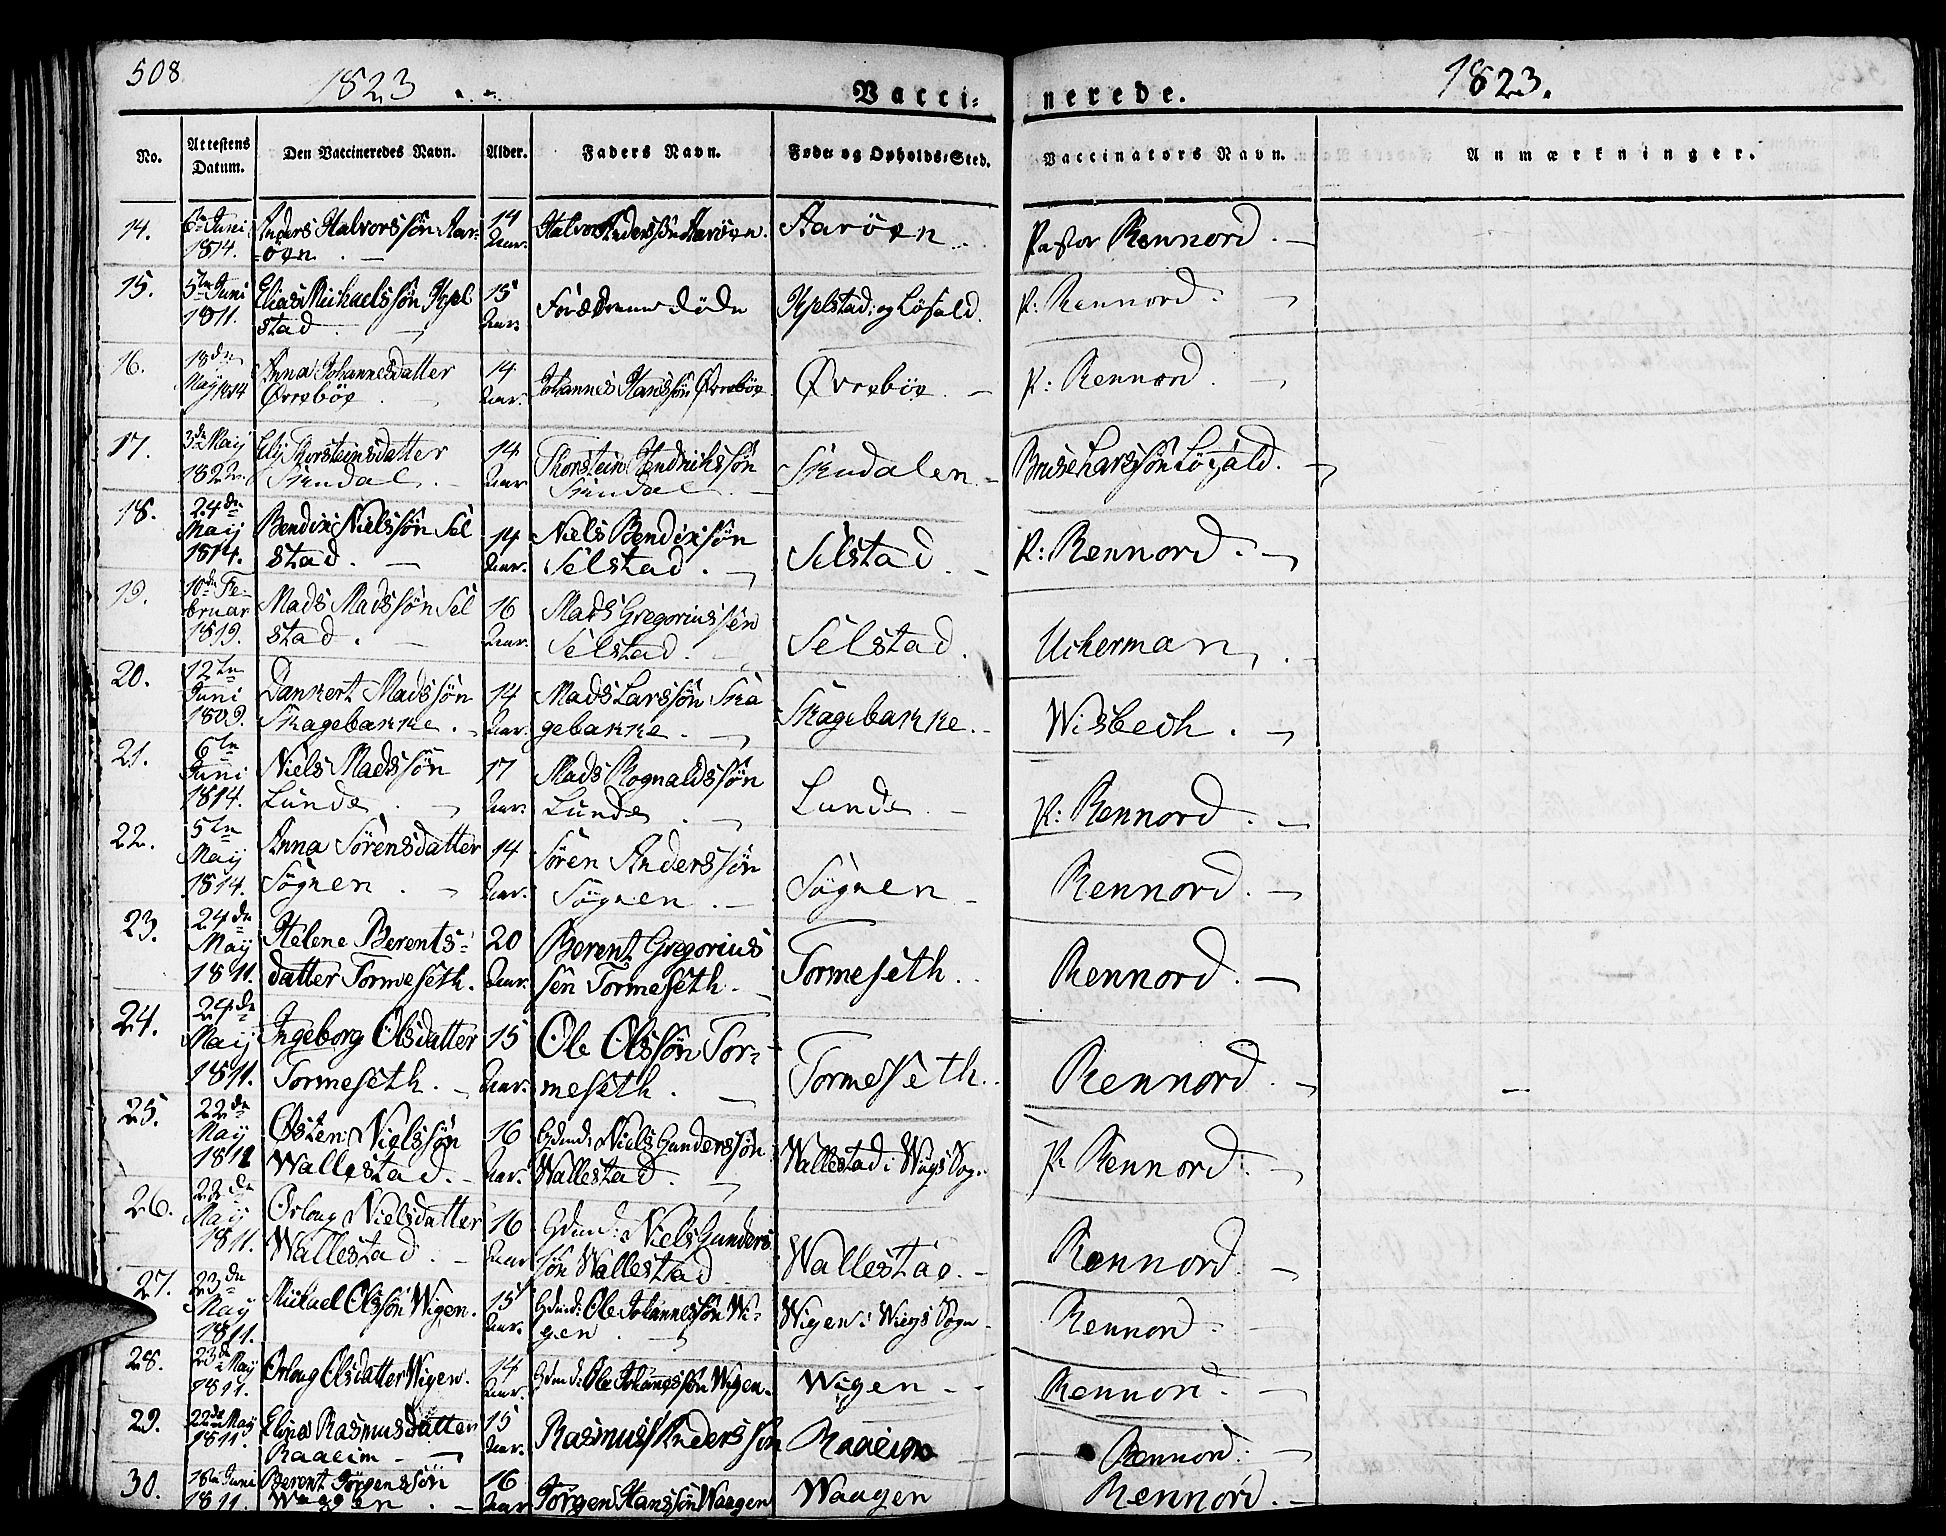 508
1823
Vacci-
nerede.
1823.
No.
Attestens Datum.
Den Vaccineredes Navn.
Alder.
Faders Navn.
Føde og Opholds-Sted.
Vaccinators Navn.
Anmærkninger.
14. 6te Juni 1814. Anders Halvorssøn Aarøen. 14 Aar. Halvor Anderssøn Aarøen. Aarøen. Pastor Rennord.
15. 5te Juni 1811. Elias Michaelssøn Kjelstad 15 Aar Forældrene døde Kjelstad: og Løfald. P: Rennord.
16. 18de May 1814 Anna Johannesdatter Øvrebøe. 14 Aar. Johannes Hanssøn Øvrebøe. Øvrebøe. P: Rennord.
17. 3de May 1822. Thorsteinsdatter 14 Aar Thorstein Hendrikssøn Larssøn
18. 24de Maij 1814. Bendix Nielssøn Selstad. 14 Aar. Niels Bendixsøn Selstad. Selstad. P: Rennord.
19. 10de Februar 1819. Mads Madssøn Selstad. 16 Aar. Mads Gregoriussøn Selstad. Selstad. Ucherman.
20. 12te Juni 1809. Dankert Madssøn Skagebakke. 14 Aar. Mads Larssøn Skagebakke. Skagebakke. Wisbech.
21. 6te Juni 1814. Niels Madssøn Lunde. 17 Aar. Mads Rognaldssøn Lunde. Lunde P: Rennord.
22. 5te May 1814. Anna Sørensdatter Søgnen. 14 Aar. Søren Anderssøn Søgnen. Søgnen Rennord.
23. 24de May 1811. Helene Berentsdatter Tormeseth. 20 Aar. Berent Gregoriussen Tormeseth. Tormeseth. Rennord.
24. 24de Maij 1811. Ingeborg Olsdatter Tormeseth. 15 Aar. Ole Olssøn Tormeseth. Tormeseth. Rennord.
25. 22de May 1811 Østen Nielssøn Wallestad. 16 Aar. Gdmd: Niels Gunderssøn Wallestad. Wallestad i Wiigs Sogn. P. Rennord.
26. 22de Maij 1811. Orloug Nielsdatter Wallestad. 16 Aar Gdmd: Niels Gunderssøn Wallestad Wallestad. Rennord.
27. 23de May 1811. Mickael Olssøn Wigen. 15 Aar. Gdmd: Ole Johannessøn Wigen. Wigen i Wiigs Sogn Rennord.
28. 23de May 1811. Orloug Olsdatter Wigen. 14 Aar. Gdmd: Ole Johannessøn Wigen. Wigen Rennord.
29. 22de May 1811. Rasmusdatter Raaeim 15 Aar. Rasmus Anderssøn Raaeim Rennord.
30. 18de Juni 1811. Berent Jørgenssøn Waagen. 16 Aar Jørgen Hanssøn Waagen Waagen Rennord.